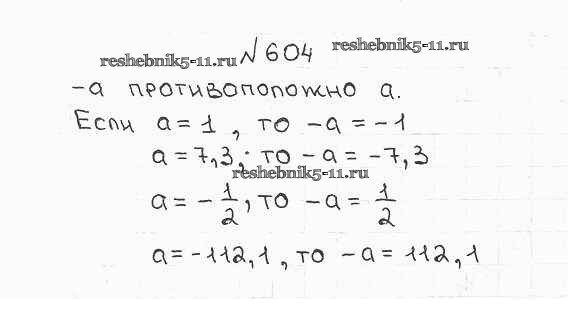 № 604
reshebnik5-11.ru
reshebnik5-11.ru
-a противоположно a.
Если a = 1, то -a = -1
a = 7,3; то -a = -7,3
reshebnik5-11.ru
a = -1/2, то -a = 1/2
a = -112,1, то -a = 112,1